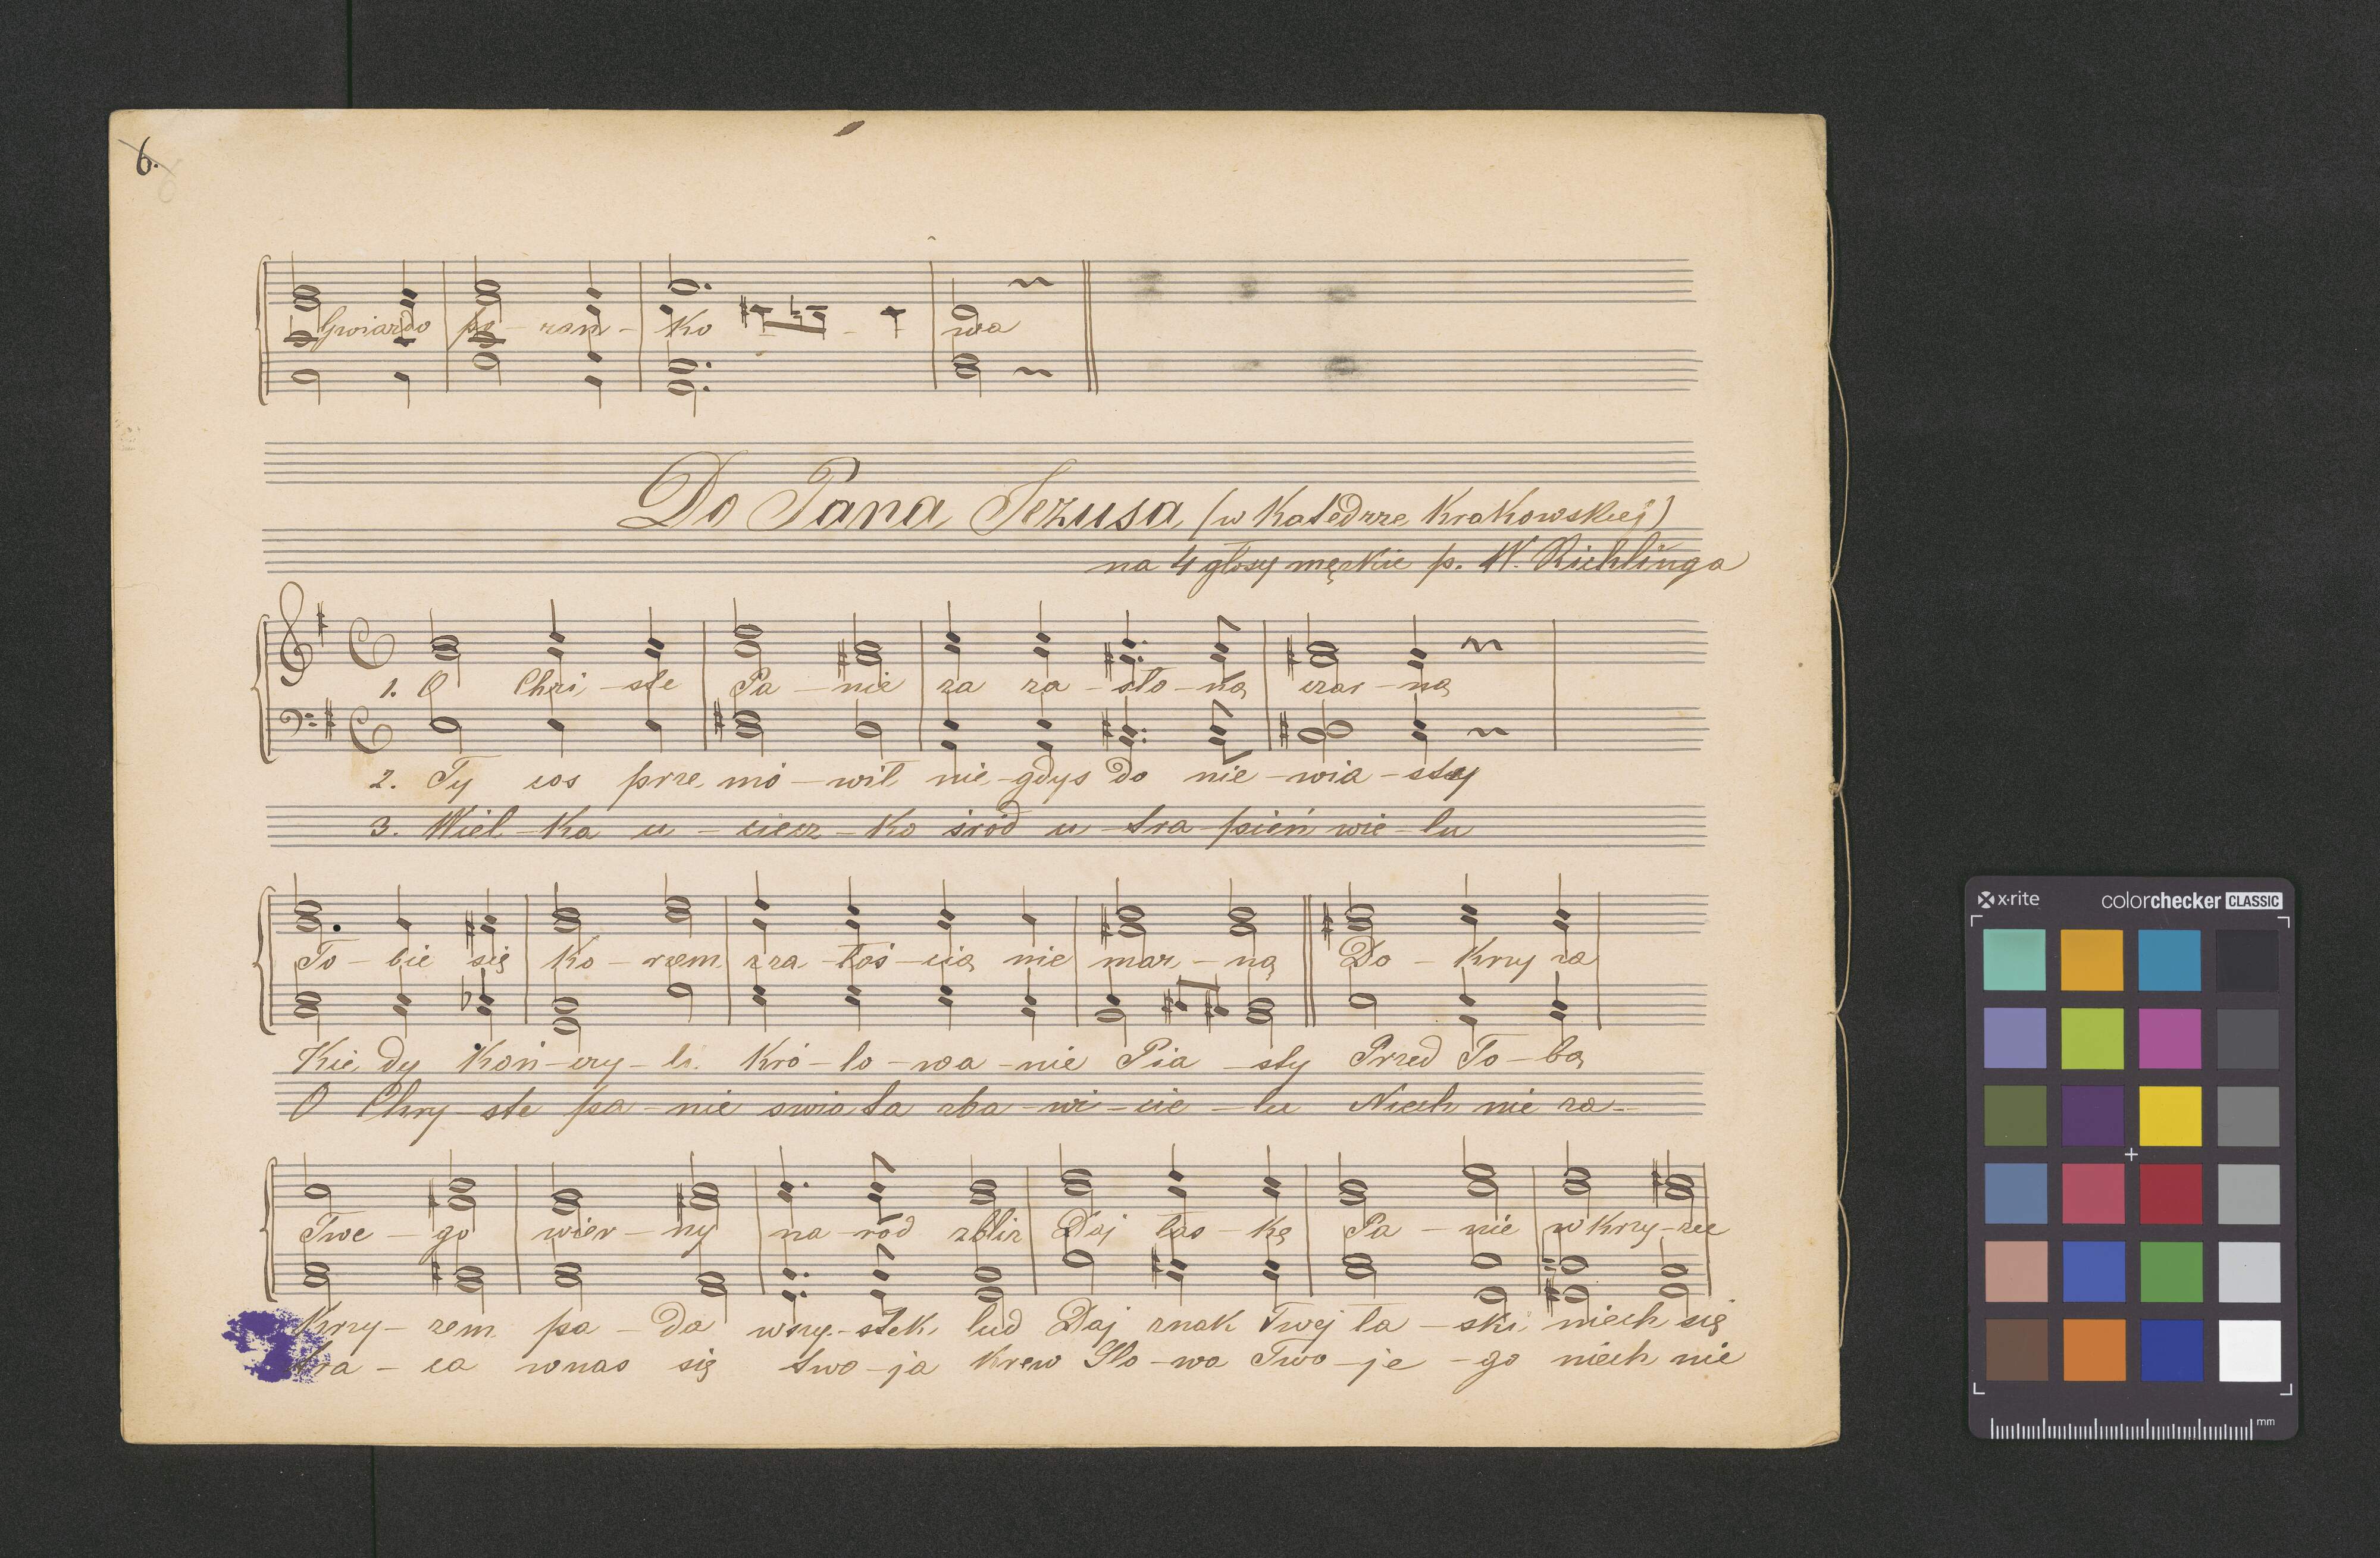 6.
Gwiazdo po - ran - ko - - wa
Do Pana Jezusa (w Katedrze Krakowskiej)
na 4 głosy męzkie p. W. Richlinga
1. O Chri - ste Pa - nie za za - sło - ną czar - ną
2. Ty cos prze mó - wił nie - gdys do nie - wia - sty
3. Wiel - ka u - ciecz - ko śród u - tra - pień wie - lu
To - bie się ko - rzem z ża - łoś - cią nie mar - ną Do - krzy ża
Kie dy koń - czy - ła kró - lo - wa - nie Pia - sty Przed To - bą
O Chry - ste pa - nie swia ta zba - wi - cie - lu Niech nie za -
Twe - go wier - ny na - ród zbliż Daj łas - kę Pa - nie w krzy - żu
Krzy - żem pa - da wszy - stek lud Daj znak Twej ła - ski niech się
tra - ca w nas się two - ja krew Sło - wa Two - je - go niech nie
x·rite
colorchecker CLASSIC
mm